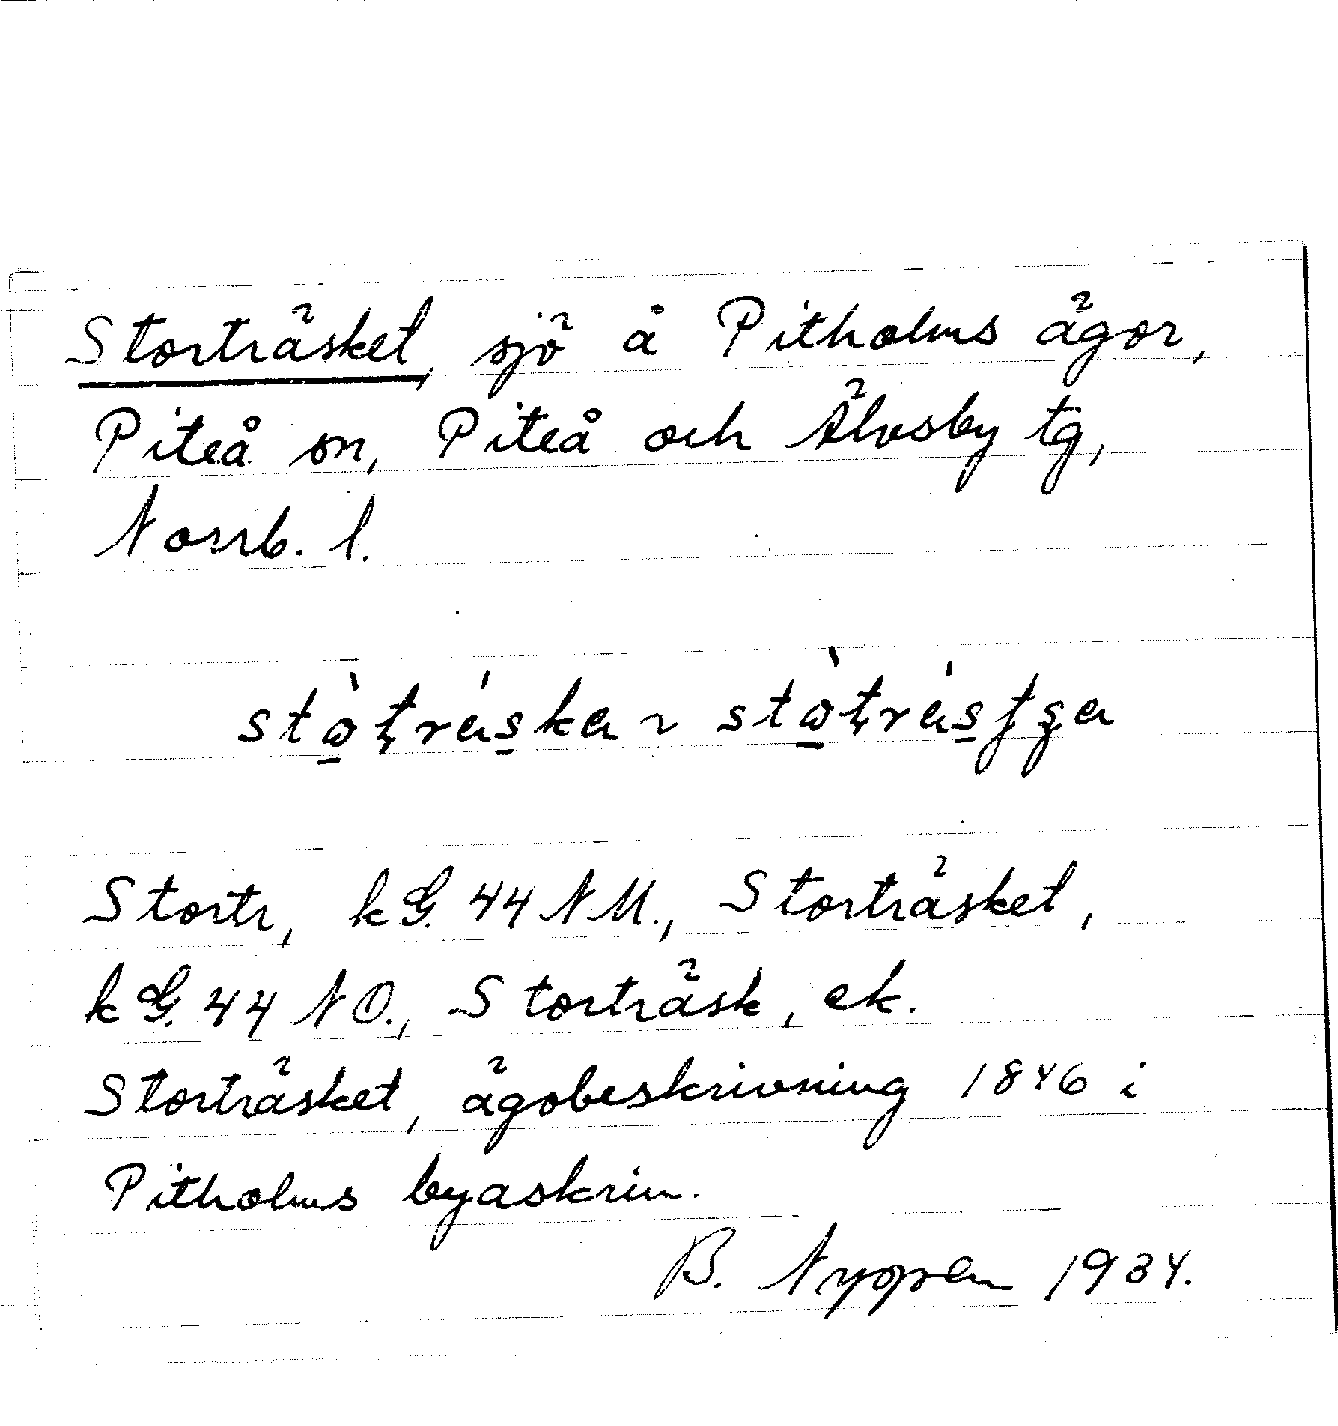 Storträsket, sjö å Pitholms ägor,
Piteå sn, Piteå och Älvsby tg,
Norrb. l.
Stortr, kG. 44 NM., Storträsket,
kG. 44 NO., Storträsk, ek.
Storträsket, ägobeskrivning 1846 i
Pitholms byaskrin.
B. 1934.